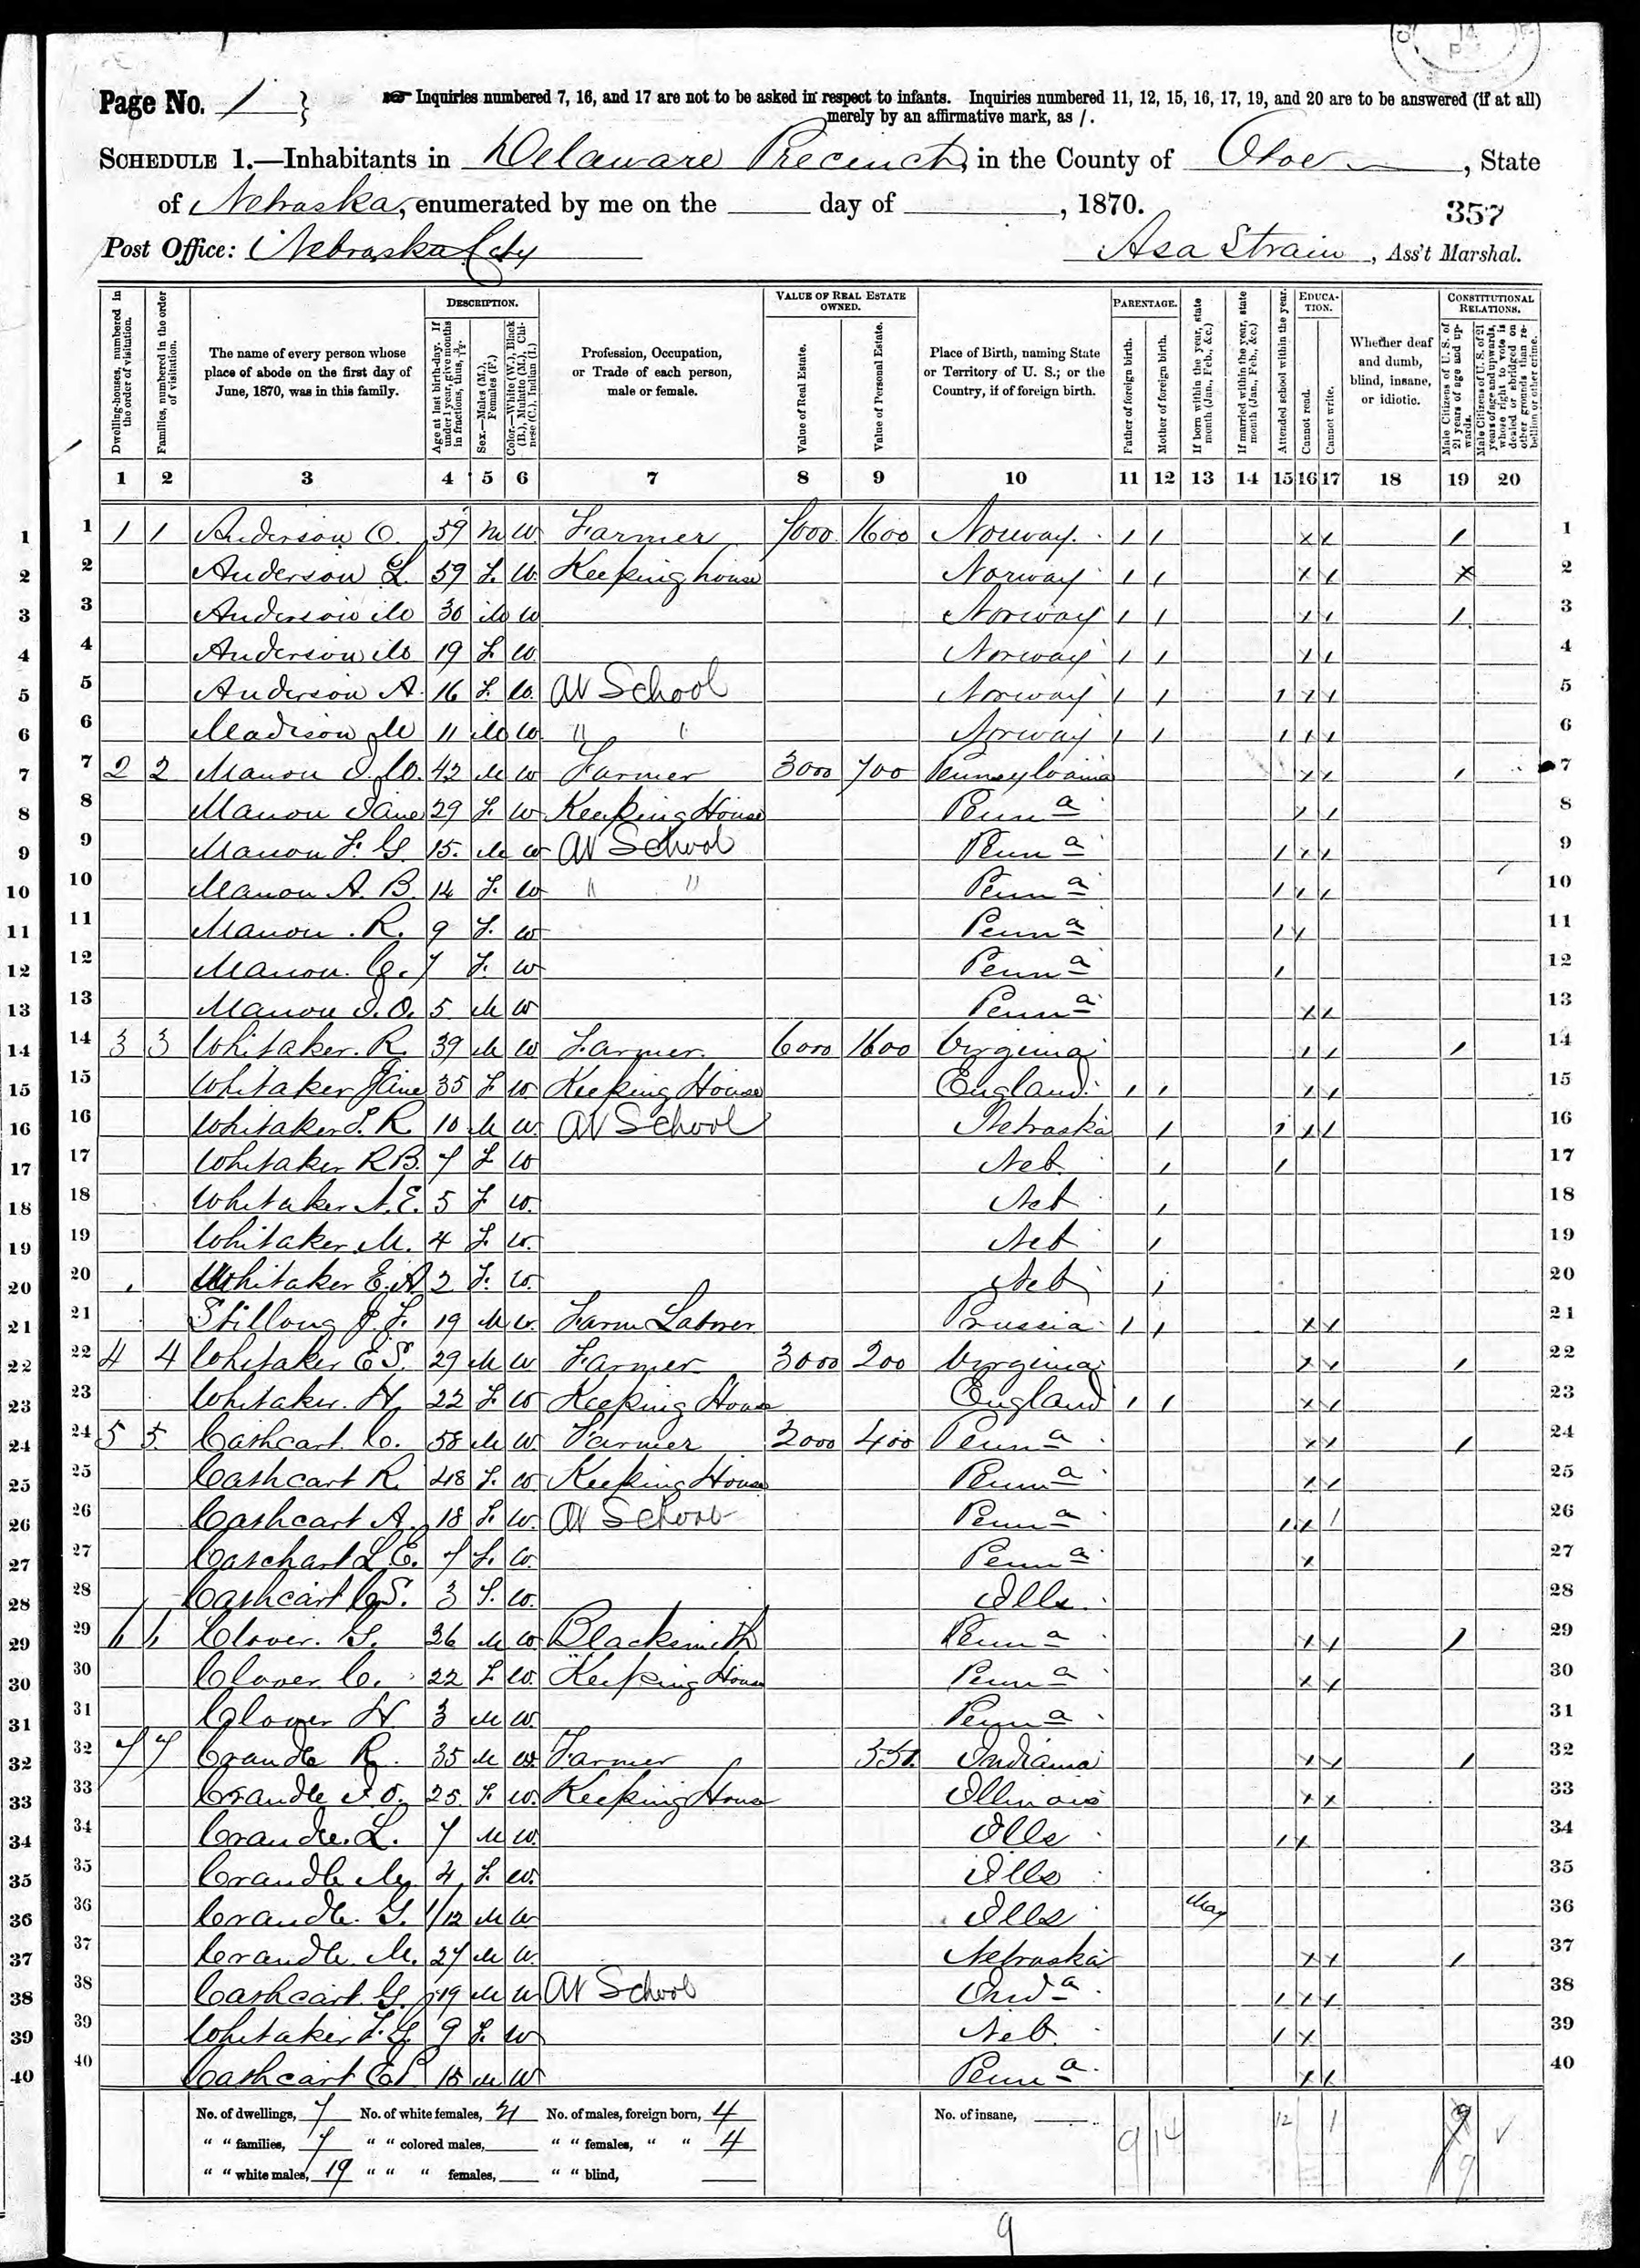 Page No. 1 } Inquiries numbered 7, 16, and 17 are not to be asked in respect to infants. Inquiries numbered 11, 12, 15, 16, 17, 19, and 20 are to be answered (if at all)
merely by an affirmative mark, as /.
SCHEDULE 1.—Inhabitants in Delaware Precinct, in the County of Otoe, State
of Nebraska, enumerated by me on the ___ day of ___, 1870.
357
Post Office: Nebraska City Asa Strain, Ass't Marshal.
Dwelling-houses, numbered in the order of visitation.
Families, numbered in the order of visitation.
The name of every person whose place of abode on the first day of June, 1870, was in this family.
DESCRIPTION.
Age at last birth-day. If under 1 year, give months in fractions, thus, 3/12.
Sex.—Males (M.), Females (F.)
Color.—White (W.), Black (B.), Mulatto (M.), Chinese (C.), Indian (I.)
Profession, Occupation, or Trade of each person, male or female.
VALUE OF REAL ESTATE OWNED.
Value of Real Estate.
Value of Personal Estate.
Place of Birth, naming State or Territory of U. S.; or the Country, if of foreign birth.
PARENTAGE.
Father of foreign birth.
Mother of foreign birth.
If born within the year, state month (Jan., Feb., &c.)
If married within the year, state month (Jan., Feb., &c.)
Attended school within the year.
EDUCATION.
Cannot read.
Cannot write.
Whether deaf and dumb, blind, insane, or idiotic.
CONSTITUTIONAL RELATIONS.
Male Citizens of U. S. of 21 years of age and upwards.
Male Citizens of U. S. of 21 years of age and upwards, whose right to vote is denied or abridged on other grounds than rebellion or other crime.
1 2 3 4 5 6 7 8 9 10 11 12 13 14 15 16 17 18 19 20
1 1 1 1 Anderson O. 59 M W. Farmer 7000 1600 Norway / / x / / 1
2 2 Anderson L. 59 F. W. Keeping house Norway / / x / x 2
3 3 Anderson M 30 M W Norway / / x / / 3
4 4 Anderson M 19 F. W Norway / / x / 4
5 5 Anderson A. 16 F. W. At School Norway / / / x / 5
6 6 Madison M 11 M W. " " Norway / / / / / 6
7 7 2 2 42 M W Farmer 3000 700 Pennsylvania x / / 7
8 8 Manon Jane 29 F. W Keeping House Penna / / 8
9 9 Manon F. G. 15. M W At School Penna / x / 9
10 10 Manon A. B. 14 F. W " " Penna / / / 10
11 11 Manon. R. 9 F. W Penna / / 11
12 12 Manon. C. 7 F. W Penna / 12
13 13 Manon J. O. 5 M W Penna x x 13
14 14 3 3 Whitaker. R. 39 M W Farmer. 6000 1600 Virginia / / / 14
15 15 Whitaker Jane 35 F W. Keeping House England / / / / 15
16 16 Whitaker R 10 M W. At School Nebraska / / x / 16
17 17 Whitaker R B. 7 F W Neb. / / 17
18 18 Whitaker A. E. 5 F W. Neb / 18
19 19 Whitaker M. 4 F. W. Neb / 19
20 20 Whitaker E. A 2 F. W. Neb / 20
21 21 J. F. 19 M W. Farm Labrer Prussia / / x x 21
22 22 4 4 Whitaker E S. 29 M W Farmer 3000 200 Virginia x x / 22
23 23 Whitaker. H. 22 F. W Keeping House England / / x / 23
24 24 5 5. Cathcart. C. 58 M W. Farmer 2000 400 Penna x x / 24
25 25 Cathcart R. 48 F. W. Keeping House Penna / / 25
26 26 Cathcart A. 18 F. W. At School Penna / x / 26
27 27 Caschart L E. 7 F. W. Penna x 27
28 28 Cathcart C S. 3 F. W. Ills. 28
29 29 6 6 Clover. G. 26 M W Blacksmith Penna x x / 29
30 30 Clover C. 22 F W. Keeping House Penna x x 30
31 31 Clover H 3 M W. Penna 31
32 32 7 7 Crandle R. 35 M W. Farmer 350. Indiana x / / 32
33 33 Crandle 25. F. W. Keeping House Illinois x x 33
34 34 Crandle. L. 7 M W. Ills / x 34
35 35 Crandle 4 F. W. Ills 35
36 36 Crandle. G. 1/12 M W Ills May 36
37 37 Crandle. M. 27 M W. Nebraska x x / 37
38 38 Cathcart. G. 19 M W At School Inda / / / 38
39 39 Whitaker F. G. 9 F. W Neb. / x 39
40 40 Cathcart 15 M W Penna x x 40
No. of dwellings, 7 No. of white females, 21 No. of males, foreign born, 4 No. of insane, ___
" " families, 7 " " colored males, ___ " " females, " " 4
" " white males, 19 " " " females, ___ " " blind, ___
9 14 12 1 9
9